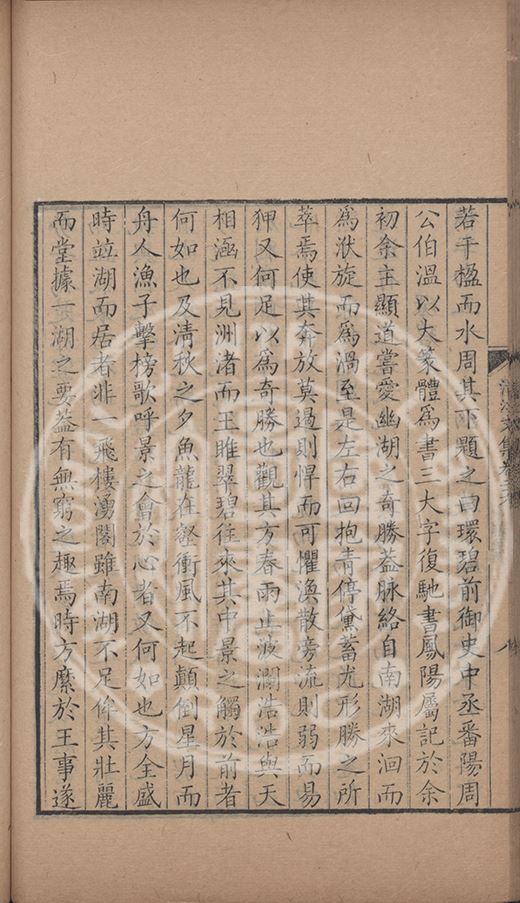 若干楹而水周其下題之曰環碧前御史中丞番陽周
公伯溫以大篆體為書三大字復馳書鳳陽屬記於余
初余主顯道嘗愛幽湖之奇勝葢脉絡自南湖來洄而
為洑旋而為渦至是左右回抱青停黛蓄尤形勝之所
萃焉使其奔放莫遏則悍而可懼渙散旁流則弱而易
狎又何足以為奇勝也觀其方春雨止波瀾浩浩與天
相涵不見洲渚而王雎翠碧往來其中景之觸於前者
何如也及清秋之夕魚龍在壑衝風不起顛倒星月而
舟人漁子擊榜歌呼景之會於心者又何如也方全盛
時竝湖而居者非一飛樓湧閣雖南湖不足侔其壯麗
而堂據一湖之要葢有無窮之趣焉時方縻於王事遂